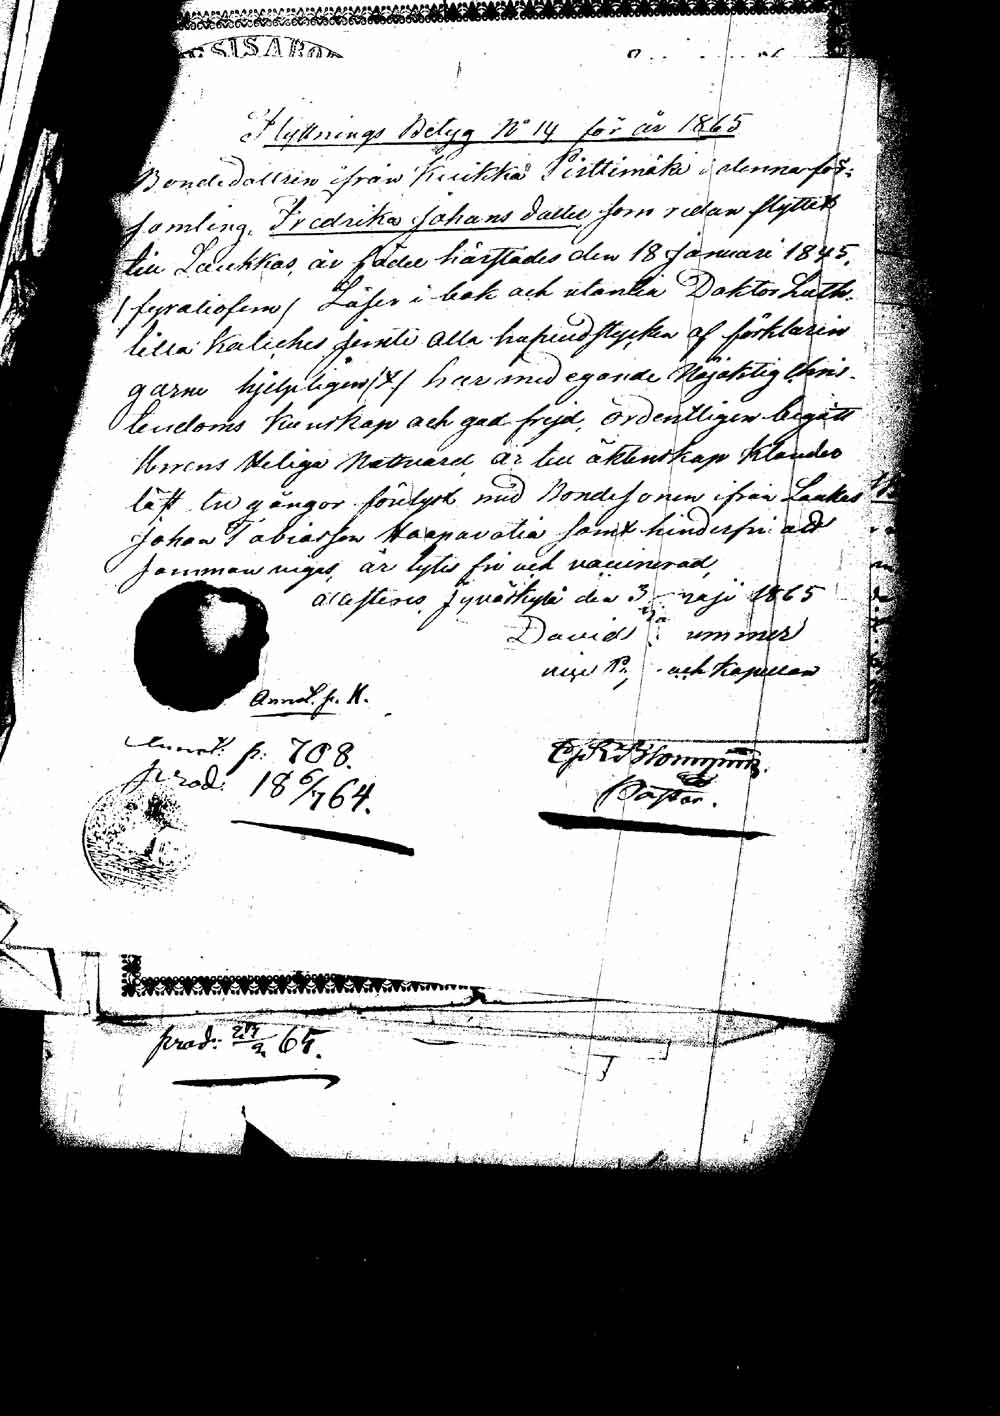 SISAR
Flyttnings Betyg No 14 för år 1865
Bondedottren ifrån Kuikka Pirttimäki i denna för-
samling, Fredrika Johans dotter som redan flyttat
till Laukkas, är född härstädes den 18 Januari 1845.
(fyratiofem) Läser i bok och utantill Doktor Luth.
lilla Kateches jemte alla hufvudstycken af förklarin
garne hjelpligen har med egande Nöjaktig Chris-
tendoms kunskap och god frejd, ordentligen begått
Herrens Heliga Nattvard, är till äktenskap
låft tre gångor förelyst med Bondesonen ifrån Laukas
Johan Tobiasson Haapavatia samt hinderfri att
samman vigas, är lytis fri och vaccinerad,
attesteras, Jyväskylä den 3 Maji 1865
David
vice och Kapellan
Annot. p. K.
Annot: p: 708.
prod: 18 6/7 64.
Pastor.
prod: 65.